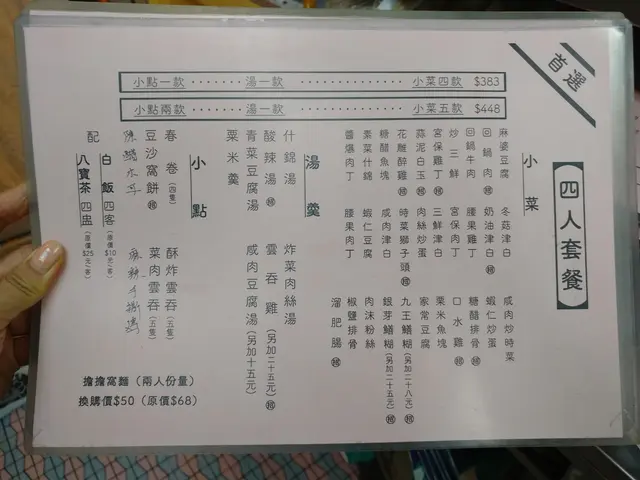 首選
四人套餐
小點一款 ······· 湯一款 ················ 小菜四款 $383
小點兩款 ······· 湯一款 ················ 小菜五款 $448
小菜
麻婆豆腐 冬菇津白 咸肉炒時菜
回鍋肉㊣ 奶油津白㊣ 蝦仁炒蛋
回鍋牛肉 腰果雞丁 糖醋排骨㊣
炒三鮮 宮保肉丁 口水雞㊣
宮保雞丁㊣ 三鮮津白 粟米魚塊
蒜泥白玉㊣ 肉絲炒蛋 家常豆腐
花雕醉雞㊣ 時菜獅子頭㊣ 九王鱔糊(另加二十八元)㊣
糖醋魚塊 咸肉津白 銀芽鱔糊(另加二十元)㊣
素菜什錦 蝦仁豆腐 肉沫粉絲
醬爆肉丁 腰果肉丁 椒鹽排骨
溜肥腸㊣
湯羹
什錦湯 炸菜肉絲湯
酸辣湯㊣ 雲吞雞(另加二十五元)㊣
青菜豆腐湯 咸肉豆腐湯(另加十五元)
粟米羹
小點
春卷(四隻) 酥炸雲吞(五隻)
豆沙窩餅㊣ 菜肉雲吞(五隻)
配
白飯四客(原價$10元/客)
八寶茶四盅(原價$25元/客)
擔擔窩麵(兩人份量)
換購價$50(原價$68)